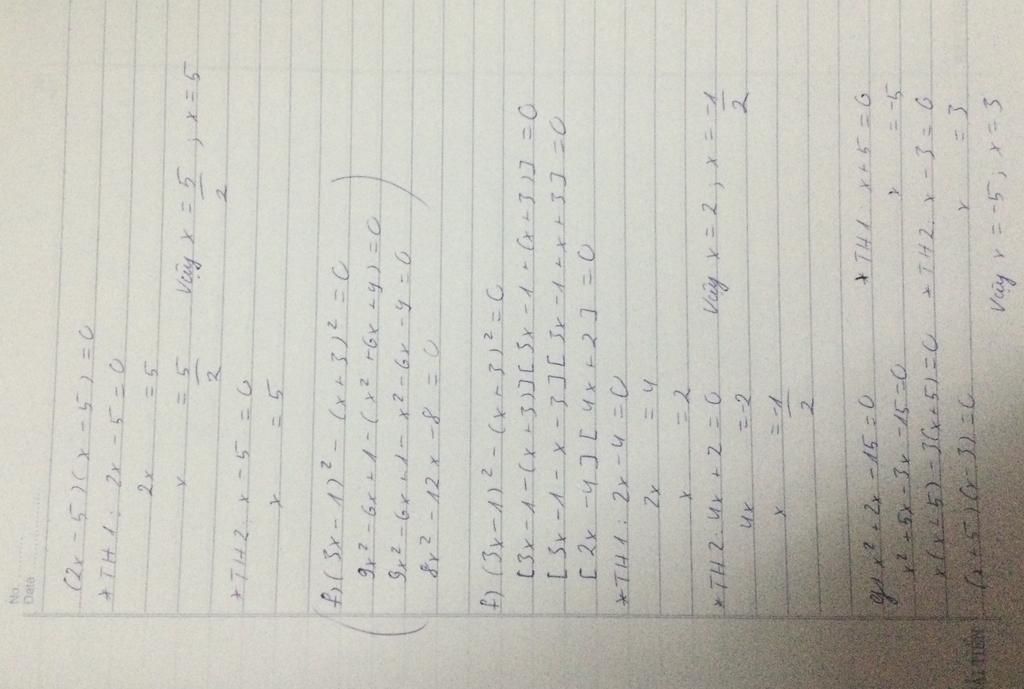 No.
Date
(2x - 5)(x - 5) = 0
* TH1: 2x - 5 = 0
2x = 5
x = 5/2 Vậy x = 5/2, x = 5
* TH2. x - 5 = 0
x = 5
f) (3x - 1)² - (x + 3)² = 0
9x² - 6x + 1 - (x² + 6x + 9) = 0
9x² - 6x + 1 - x² - 6x - 9 = 0
8x² - 12x - 8 = 0
f) (3x - 1)² - (x + 3)² = 0
[3x - 1 - (x + 3)][3x - 1 + (x + 3)] = 0
[3x - 1 - x - 3][3x - 1 + x + 3] = 0
[2x - 4][4x + 2] = 0
* TH1: 2x - 4 = 0
2x = 4
x = 2
* TH2. 4x + 2 = 0 Vậy x = 2, x = -1/2
4x = -2
x = -1/2
g) x² + 2x - 15 = 0
x² + 5x - 3x - 15 = 0
x(x + 5) - 3(x + 5) = 0
(x + 5)(x - 3) = 0
* TH1. x + 5 = 0
x = -5
* TH2. x - 3 = 0
x = 3
Vậy x = -5; x = 3